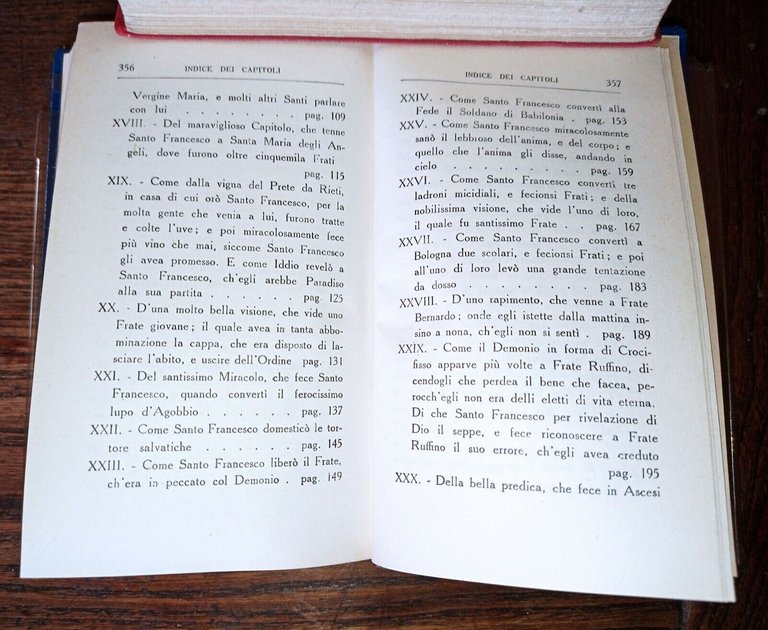 356 INDICE DEI CAPITOLI
Vergine Maria, e molti altri Santi parlare
con lui . . . . . . . pag. 109
XVIII. - Del maraviglioso Capitolo, che tenne
Santo Francesco a Santa Maria degli An-
geli, dove furono oltre cinquemila Frati
pag. 115
XIX. - Come dalla vigna del Prete da Rieti,
in casa di cui orò Santo Francesco, per la
molta gente che venia a lui, furono tratte
e colte l'uve; e poi miracolosamente fece
più vino che mai, siccome Santo Francesco
gli avea promesso. E come Iddio revelò a
Santo Francesco, ch'egli arebbe Paradiso
alla sua partita . . . . . . pag 125
XX. - D'una molto bella visione, che vide uno
Frate giovane; il quale avea in tanta abbo-
minazione la cappa, che era disposto di la-
sciare l'abito, e uscire dell'Ordine pag. 131
XXI. - Del santissimo Miracolo, che fece Santo
Francesco, quando convertì il ferocissimo
lupo d'Agobbio . . . . . pag. 137
XXII. - Come Santo Francesco domesticò le tor-
tore salvatiche . . . . . . pag. 145
XXIII. - Come Santo Francesco liberò il Frate,
ch'era in peccato col Demonio . pag. 149
INDICE DEI CAPITOLI 357
XXIV. - Come Santo Francesco convertì alla
Fede il Soldano di Babilonia . pag. 153
XXV. - Come Santo Francesco miracolosamente
sanò il lebbioso dell'anima, e del corpo; e
quello che l'anima gli disse, andando in
cielo . . . . . . . . pag. 159
XXVI. - Come Santo Francesco convertì tre
ladroni micidiali, e fecionsi Frati; e della
nobilissima visione, che vide l'uno di loro,
il quale fu santissimo Frate . . pag. 167
XXVII. - Come Santo Francesco convertì a
Bologna due scolari, e fecionsi Frati; e poi
all'uno di loro levò una grande tentazione
da dosso . . . . . . . pag. 183
XXVIII. - D'uno rapimento, che venne a Frate
Bernardo; onde egli istette dalla mattina in-
sino a nona, ch'egli non si sentì . pag. 189
XXIX. - Come il Demonio in forma di Croci-
fisso apparve più volte a Frate Ruffino, di-
cendogli che perdea il bene che facea, pe-
rocch'egli non era delli eletti di vita eterna.
Di che Santo Francesco per rivelazione di
Dio il seppe, e fece riconoscere a Frate
Ruffino il suo errore, ch'egli avea creduto
pag. 195
XXX. - Della bella predica, che fece in Ascesi